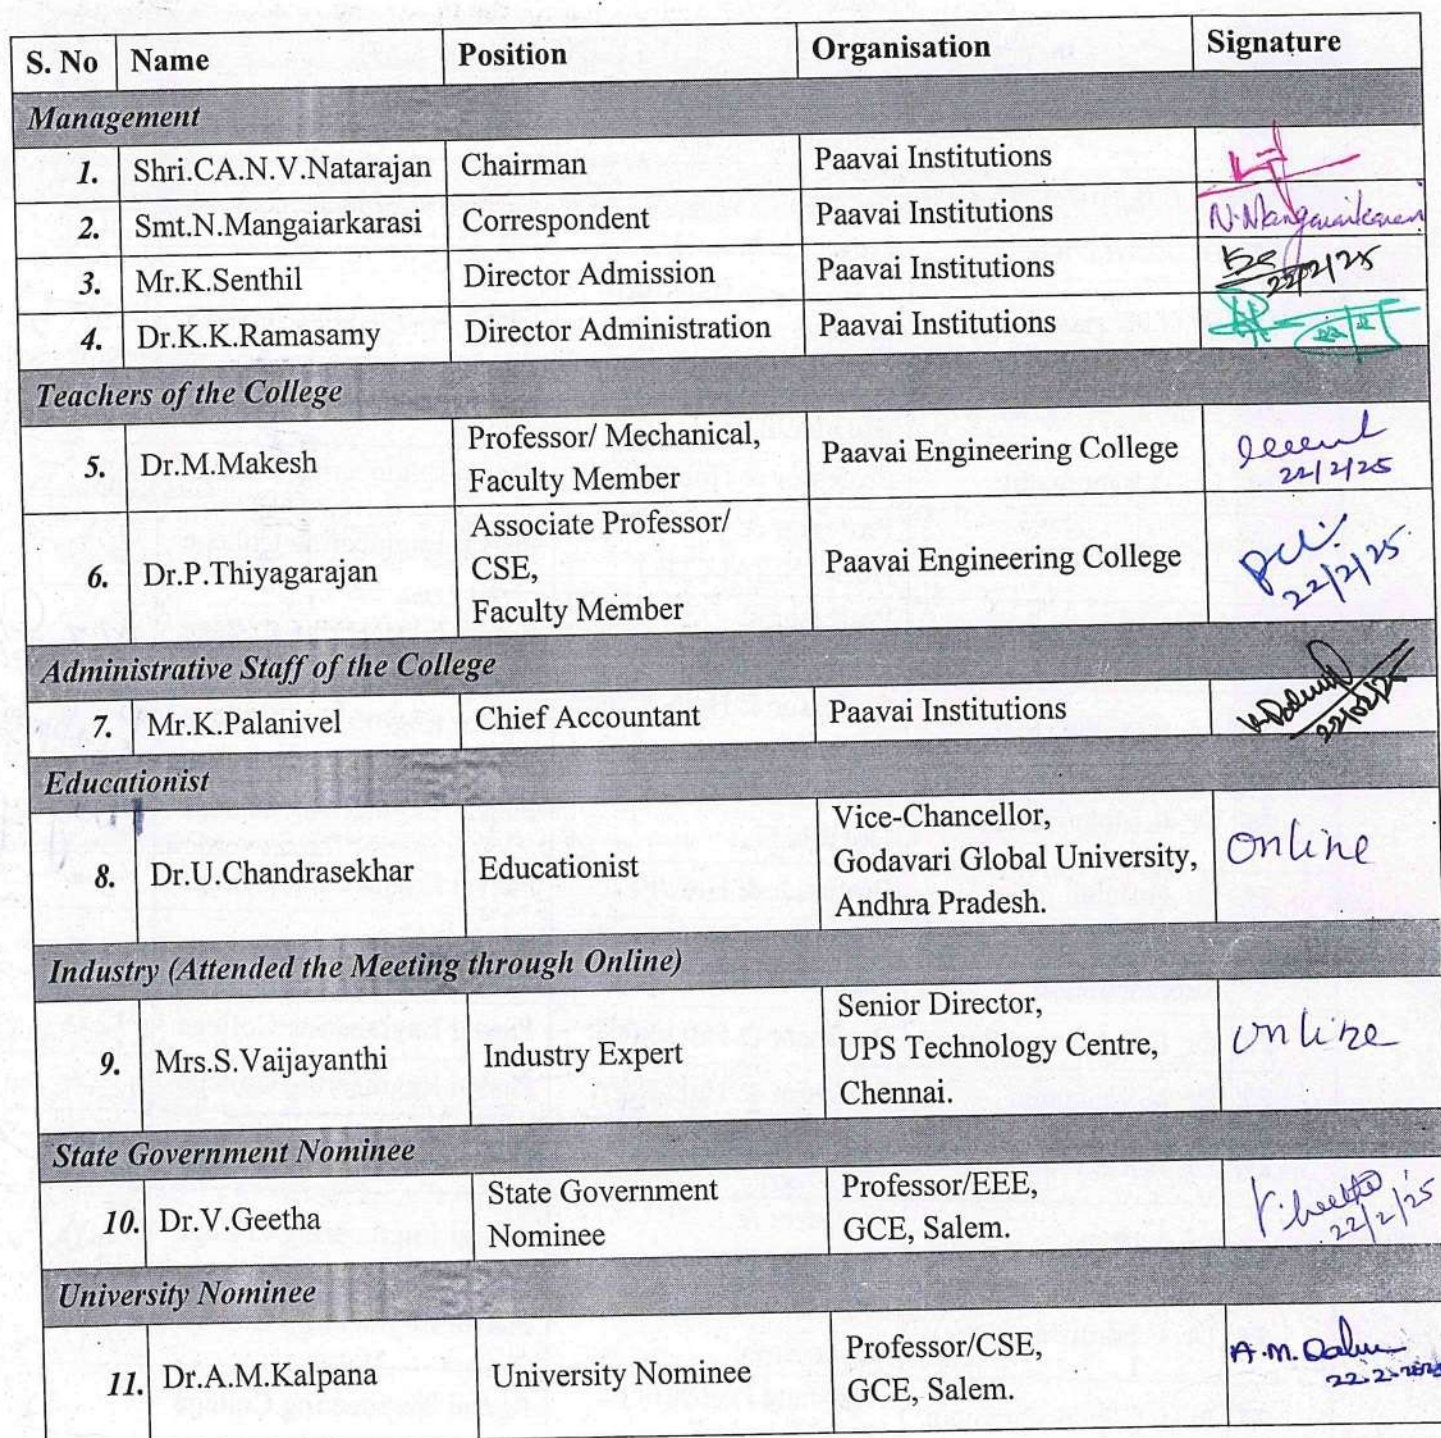 S. No Name Position Organisation Signature
Management
1. Shri.CA.N.V.Natarajan Chairman Paavai Institutions
2. Smt.N.Mangaiarkarasi Correspondent Paavai Institutions N.Mangaiarkarasi
3. Mr.K.Senthil Director Admission Paavai Institutions 22/02/25
4. Dr.K.K.Ramasamy Director Administration Paavai Institutions
Teachers of the College
5. Dr.M.Makesh Professor/ Mechanical, Faculty Member Paavai Engineering College 22/2/25
6. Dr.P.Thiyagarajan Associate Professor/ CSE, Faculty Member Paavai Engineering College 22/2/25
Administrative Staff of the College
7. Mr.K.Palanivel Chief Accountant Paavai Institutions 22/02/25
Educationist
8. Dr.U.Chandrasekhar Educationist Vice-Chancellor, Godavari Global University, Andhra Pradesh. Online
Industry (Attended the Meeting through Online)
9. Mrs.S.Vaijayanthi Industry Expert Senior Director, UPS Technology Centre, Chennai. Online
State Government Nominee
10. Dr.V.Geetha State Government Nominee Professor/EEE, GCE, Salem. V.Geetha 22/2/25
University Nominee
11. Dr.A.M.Kalpana University Nominee Professor/CSE, GCE, Salem. A.M. 22.2.2025